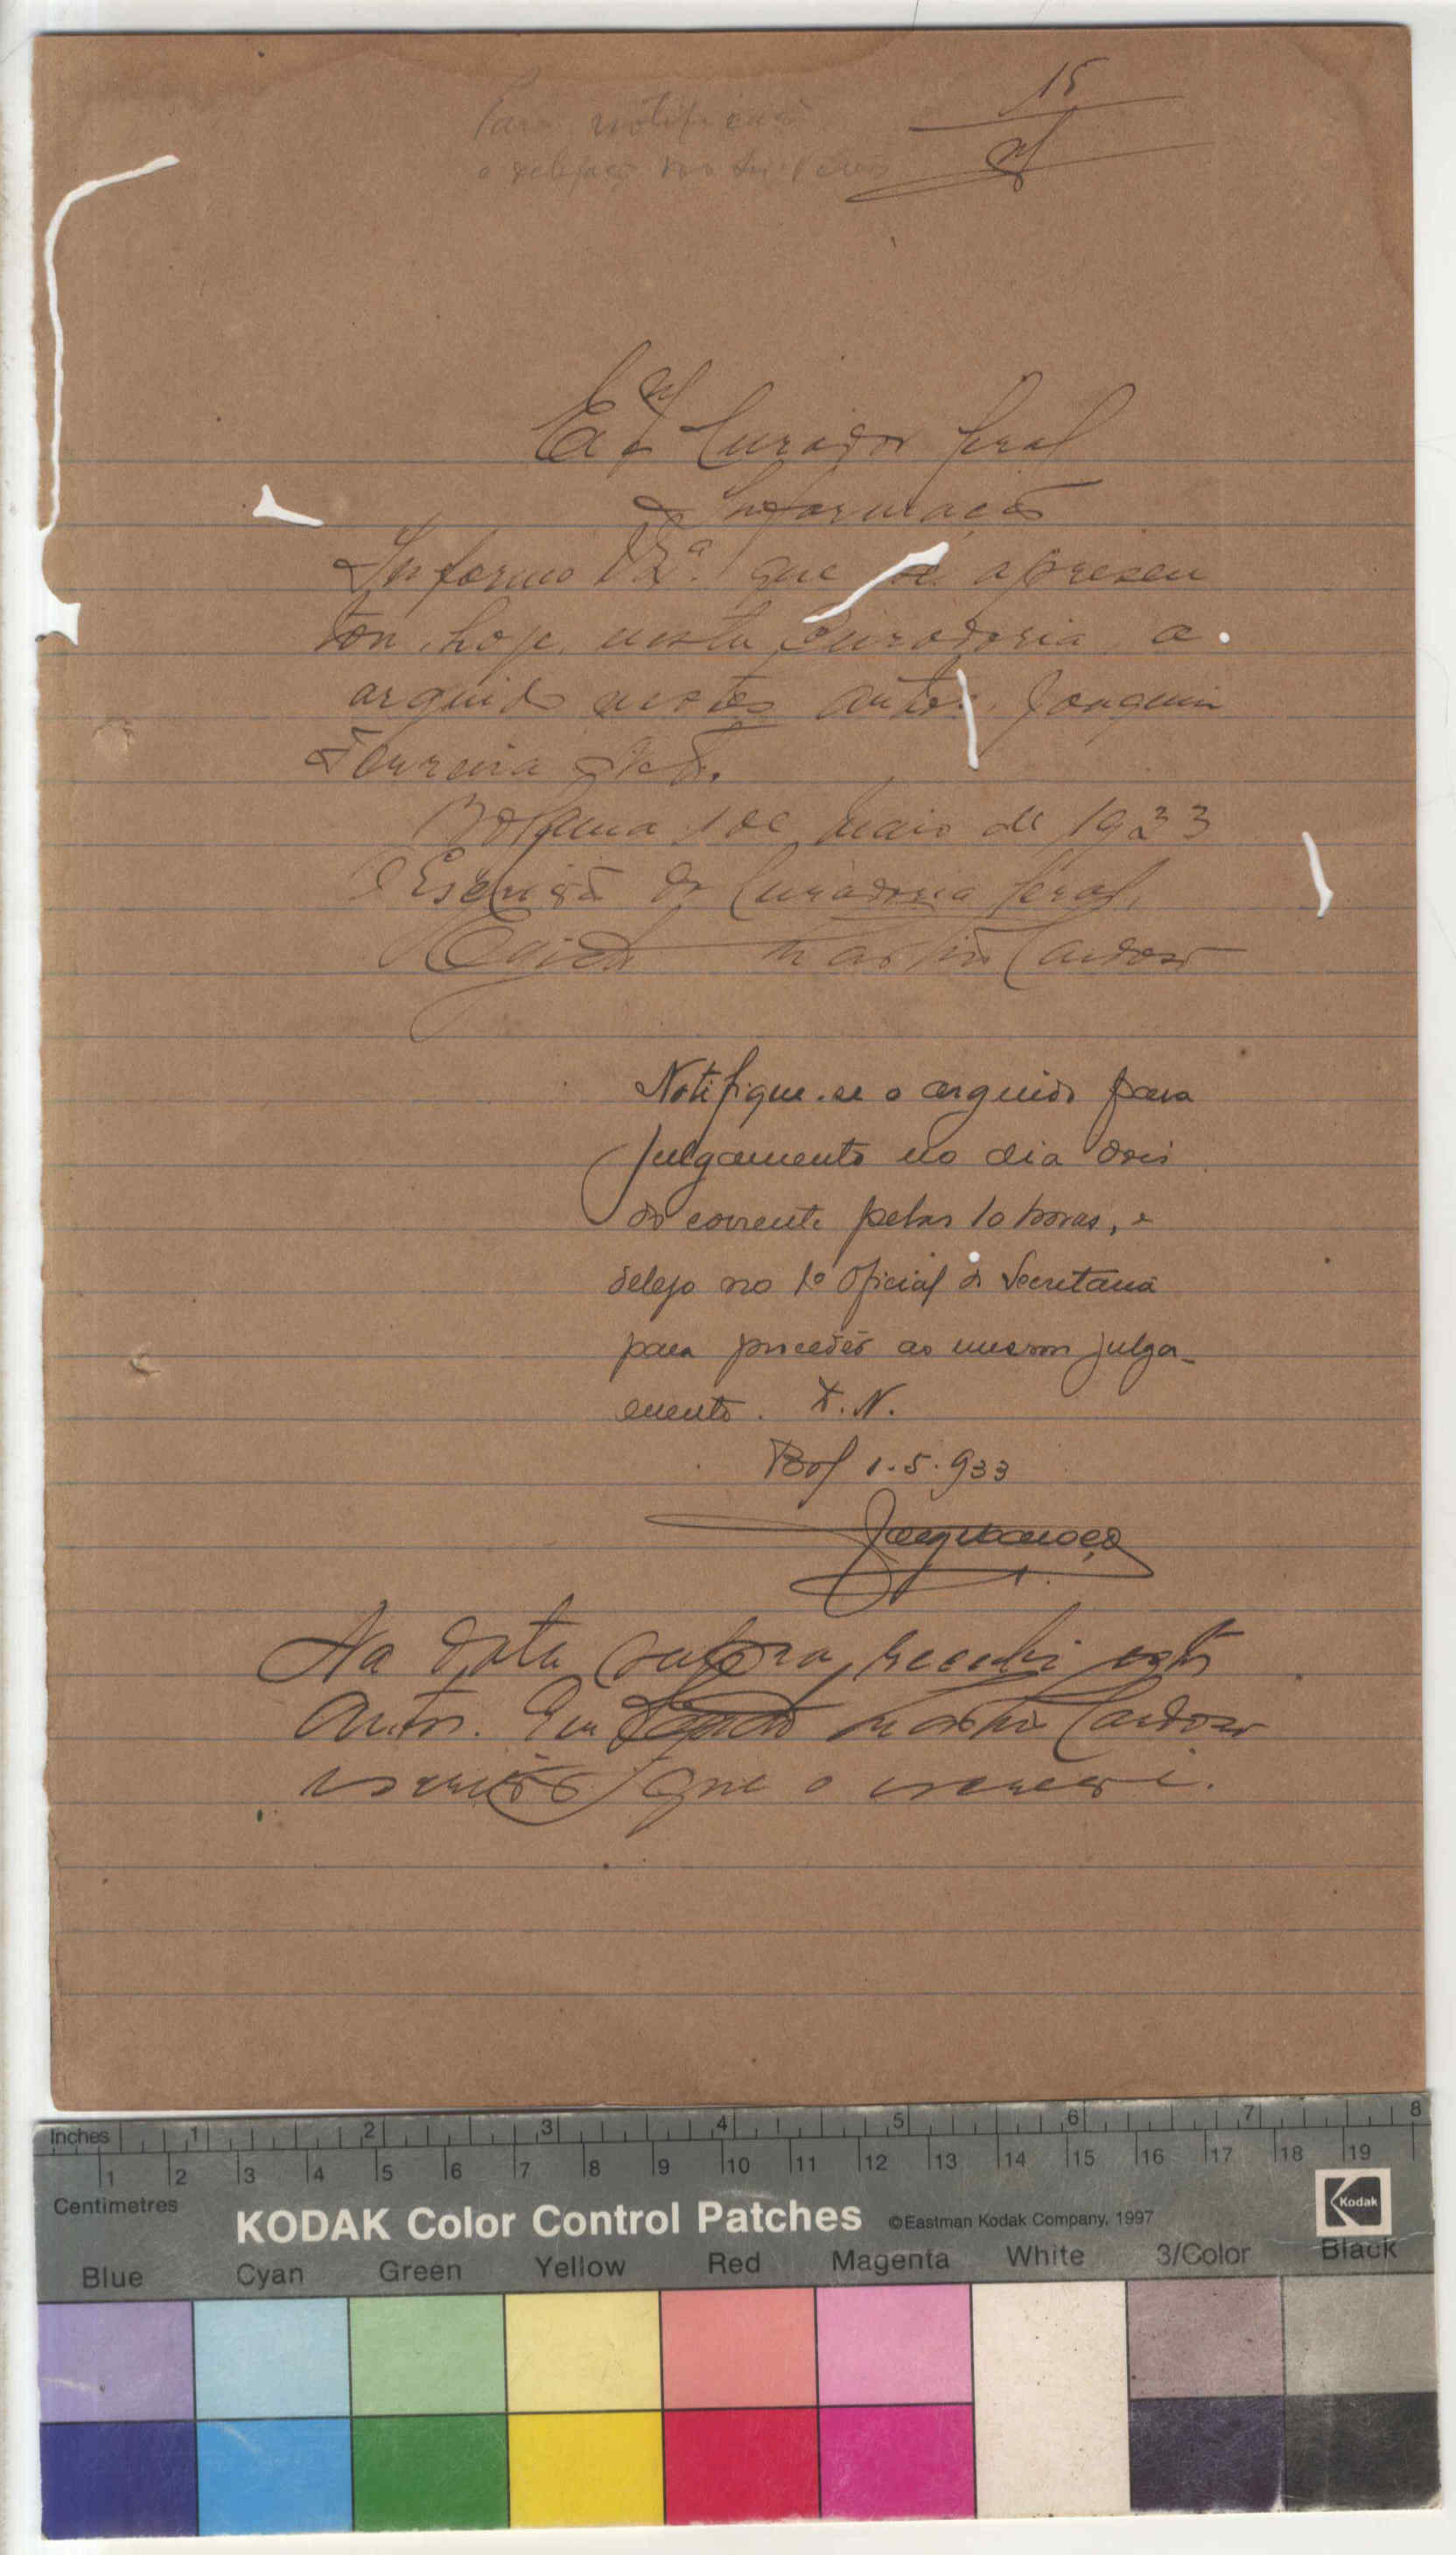 15
Para notificação
Curador Geral
Informação
Informo V. Ex.ª que se apresen
tou hoje nesta Curadoria o
arguido nestes autos, Joaquim
Ferreira
Bolama 1 de Maio de 1933
O Escrivão da Curadoria Geral,
Martins Cardoso
Notifique-se o arguido para
julgamento no dia dois
do corrente pelas 10 horas, e
delego no 1º Oficial da Secretaria
para proceder ao mesmo julga-
mento. N.
Bol 1.5.933
Na data supra, recebi estes
autos. Eu Martins Cardoso
escrivão que o escrevi.
Inches 1 2 3 4 5 6 7 8
1 2 3 4 5 6 7 8 9 10 11 12 13 14 15 16 17 18 19
Centimetres
KODAK Color Control Patches ©Eastman Kodak Company, 1997 Kodak
Blue Cyan Green Yellow Red Magenta White 3/Color Black